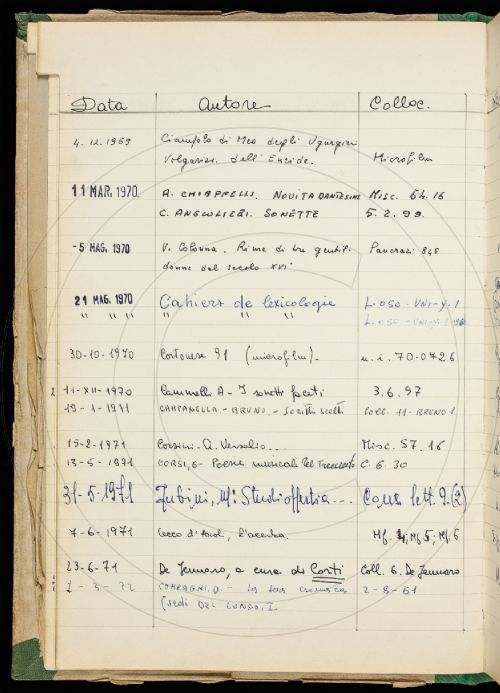 Data Autore Colloc.
4. 12. 1969 Ciampolo di Meo degli Ugurgieri
Volgarizz. dell'Eneide. Microfilm
11 MAR. 1970 A. CHIAPPELLI. NOVITA DANTESCHE Misc. 54. 16
C. ANGIOLIERI. SONETTI 5. 2. 99.
-5 MAG. 1970 V. Colonna. Rime di tre gentil-
donne del secolo XVI Pancrazi 848
21 MAG. 1970 Cahiers de lexicologie L. 050 - UNI-Y. 1
" " " " " L. 050 - UNI-Y. 1
30-10-1970 Cortonese 91 (microfilm) u.i. 70-0426
11-XII-1970 Cammelli A - I sonetti faceti 3.6.97
19-1-1971 CAMPANELLA - BRUNO. - Scritti scelti Coll. 11-BRUNO 1
15-2-1971 Corsini - Q. Misc. 57. 16
13-5-1971 CORSI, G - Poesie musicali del Trecento C. 6. 30
31-5-1971 Fubini, M: Studi Cons lett. 9.(2)
7-6-1971 Cecco d'Ascol, L'acerba. Mf. 4; Mf 5; Mf. 6
23-6-71 De Jennaro, a cura di Corti Coll. 6. De Jennaro
1 - 3 - 72 COMPAGNI, D. - La sua cronica 2-8-61
(sedi DEL LUNGO, I.